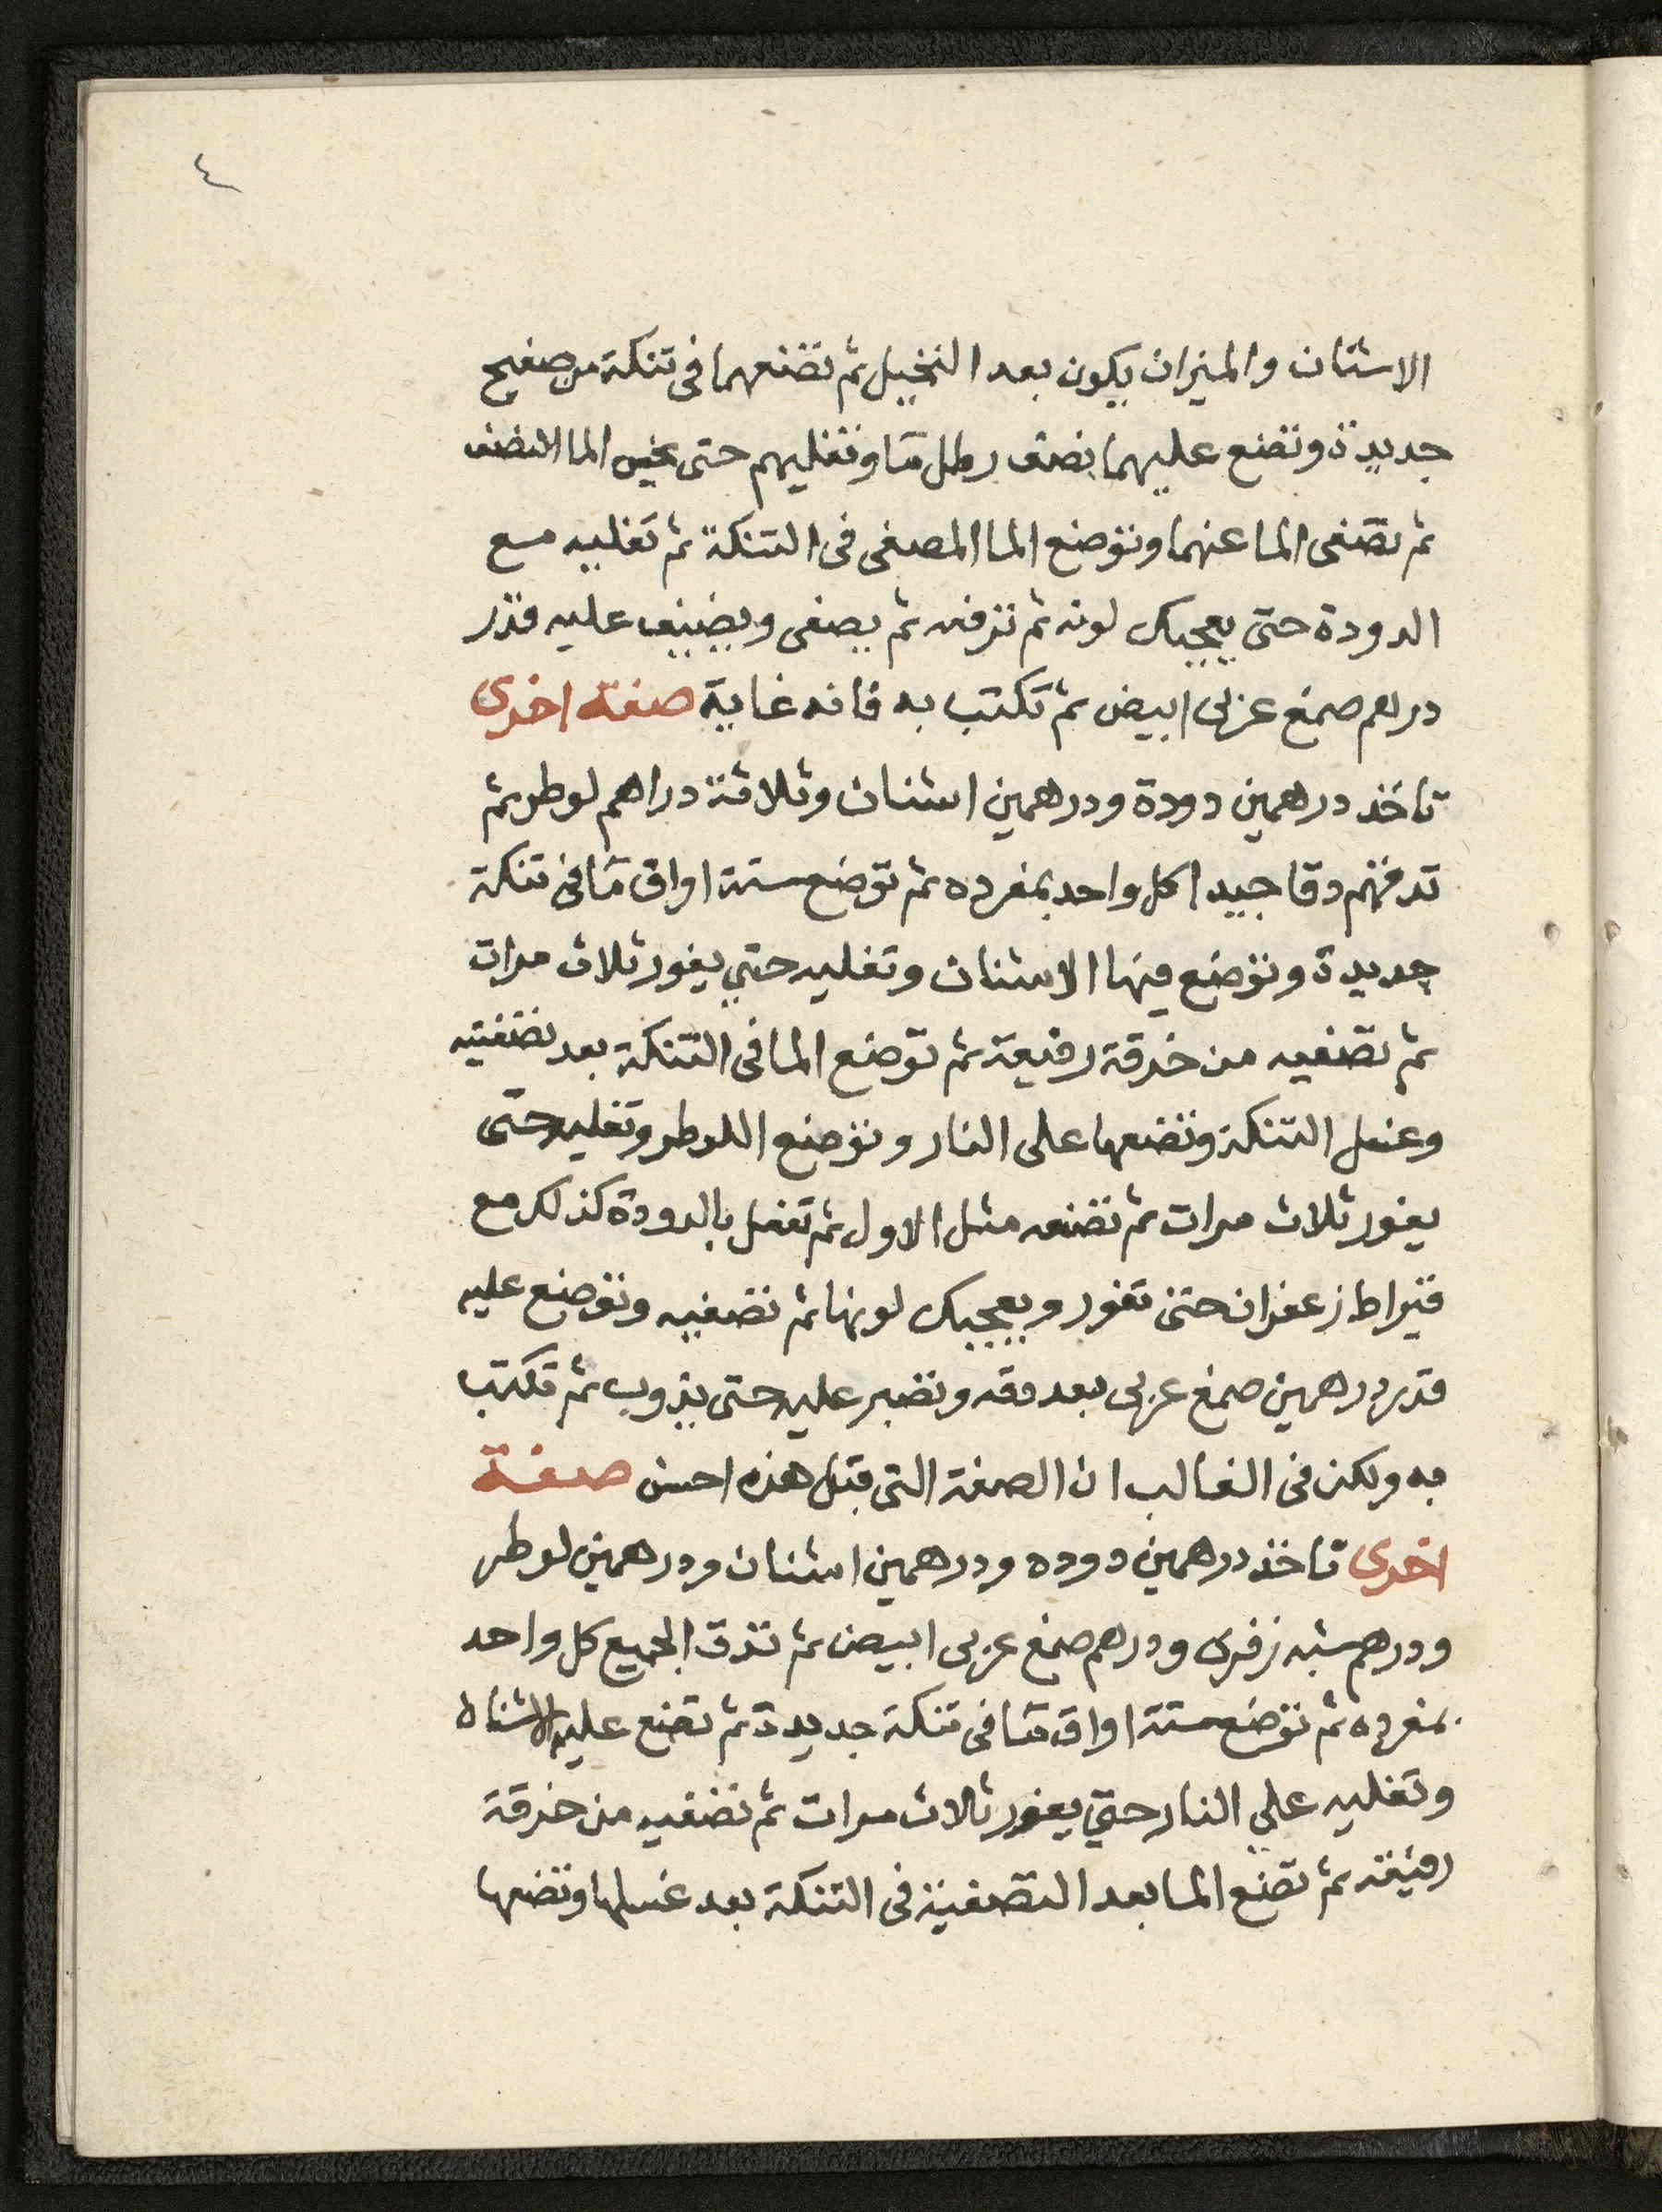 ٤
الاشنان والميزان يكون بعد النخيل ثم تضعهما فى تنكة من صفيح
جديدة وتضع عليهما نصف رطل مآ وتغليهم حتى يخس الما النصف
ثم تصفى الما عنهما وتوضع الما المصفى فى التنكة ثم تغليه مع
الدودة حتى يعجبك لونه ثم تزفه ثم يصفى ويضيف عليه قدر
درهم صمغ عربى ابيض ثم تكتب به فانه غاية صفة اخرى
تاخذ درهمين دودة ودرهمين اشنان وثلاثة دراهم لوطر ثم
تدقهم دقا جيدا كل واحد بمفرده ثم توضع ستة اواق مآ فى تنكة
جديدة وتوضع فيها الاشنان وتغليه حتى يفور ثلاث مرات
ثم تصفيه من خرقة رفيعة ثم توضع الما فى التنكة بعد تصفيته
وغسل التنكة وتضعها على النار وتوضع اللوطر وتغليه حتى
يفور ثلاث مرات ثم تصفه مثل الاول ثم تفعل بالدودة كذلك مع
قيراط زعفران حتى تفور ويعجبك لونها ثم تصفيه وتوضع عليه
قدر درهمين صمغ عربى بعد دقه وتصبر عليه حتى يذوب ثم تكتب
به ولكن فى الغالب ان الصفة التى قبل هذه احسن صفة
اخرى تاخذ درهمين دوده ودرهمين اشنان ودرهمين لوطر
ودرهم شبه زفرى ودرهم صمغ عربى ابيض ثم تدق الجميع كل واحد
بمفرده ثم توضع ستة اواق مآ فى تنكة جديدة ثم تضع عليه الاشنان
وتغليه على النار حتى يفور ثلاث مرات ثم تصفيه من خرقة
رفيعة ثم تضع الما بعد التصفية فى التنكة بعد غسلها وتضعها